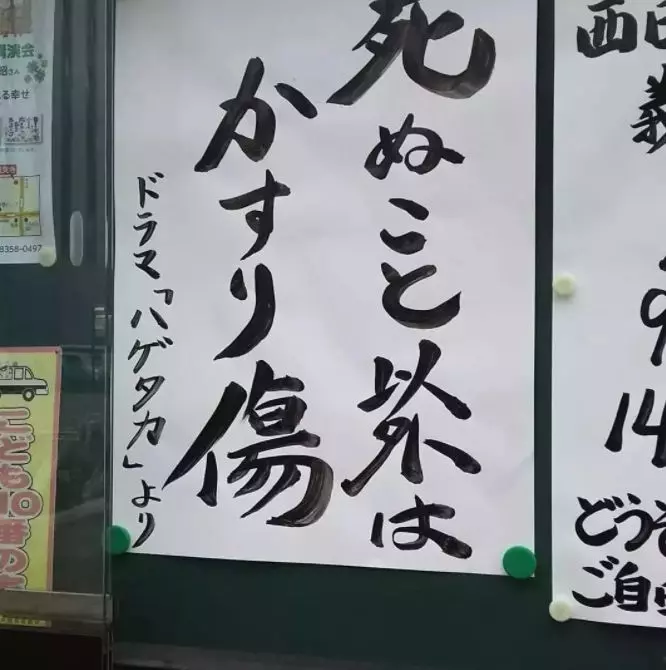 死ぬこと以外は
かすり傷
ドラマ「ハゲタカ」より
演会
さん
る幸せ
8358-0497
こども110番の
西
14
どうぞ
ご自由